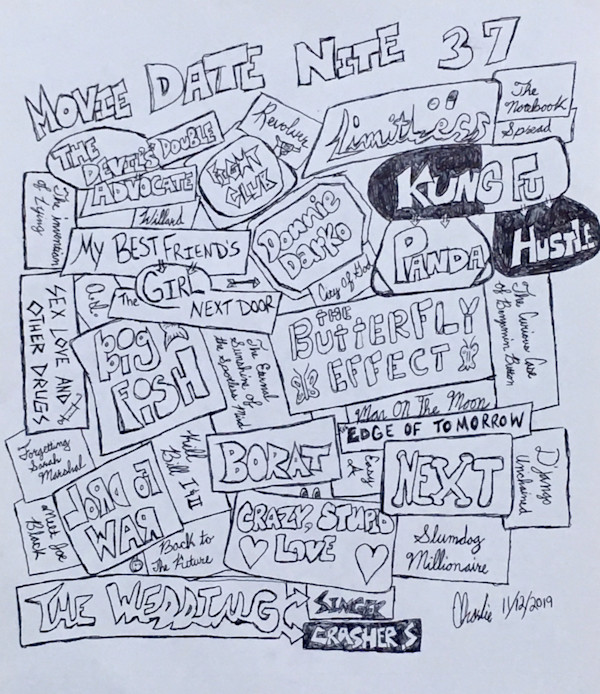 MOVIE DATE NITE 37
The
Notebook
Spread
Revolver
Limitless
THE
DEVIL'S DOUBLE
ADVOCATE
FIGHT
CLUB
KUNG FU
PANDA
HUSTLE
The invention
of Lying
Willard
MY BEST FRIEND'S
The GIRL
NEXT DOOR
Donnie
Darko
City Of God
SEX LOVE AND
OTHER DRUGS
A.I.
Big
FiSH
The Eternal
Sunshine of
the Spotless Mind
THE
BUTTERFLY
EFFECT
The Curious Case
of Benjamin Button
Man On The Moon
EDGE OF TOMORROW
Forgetting
Sarah
Marshal
Kill
Bill I & II
BORAT
Easy
A
NEXT
Django
Unchained
Meet Joe
Black
LORD OF
WAR
Back to
The Future
CRAZY, STUPID
LOVE
Slumdog
Millionaire
THE WEDDING
SINGER
CRASHER'S
Charlie 11/12/2019